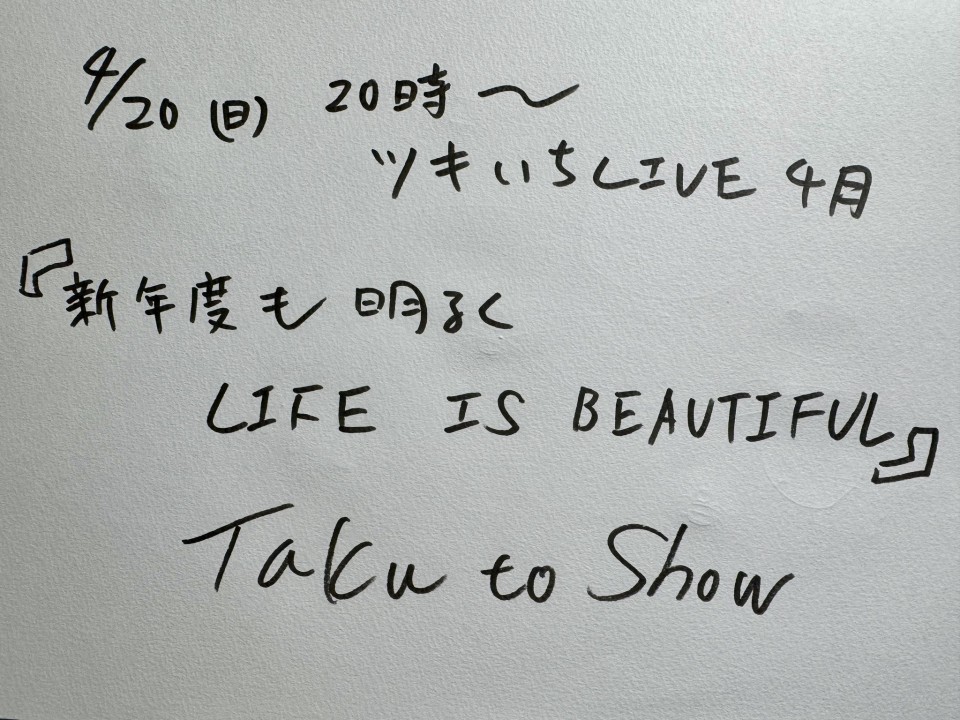 4/20(日) 20時〜
ツキいちLIVE 4月
『新年度も明るく
LIFE IS BEAUTIFUL』
Taku to Show